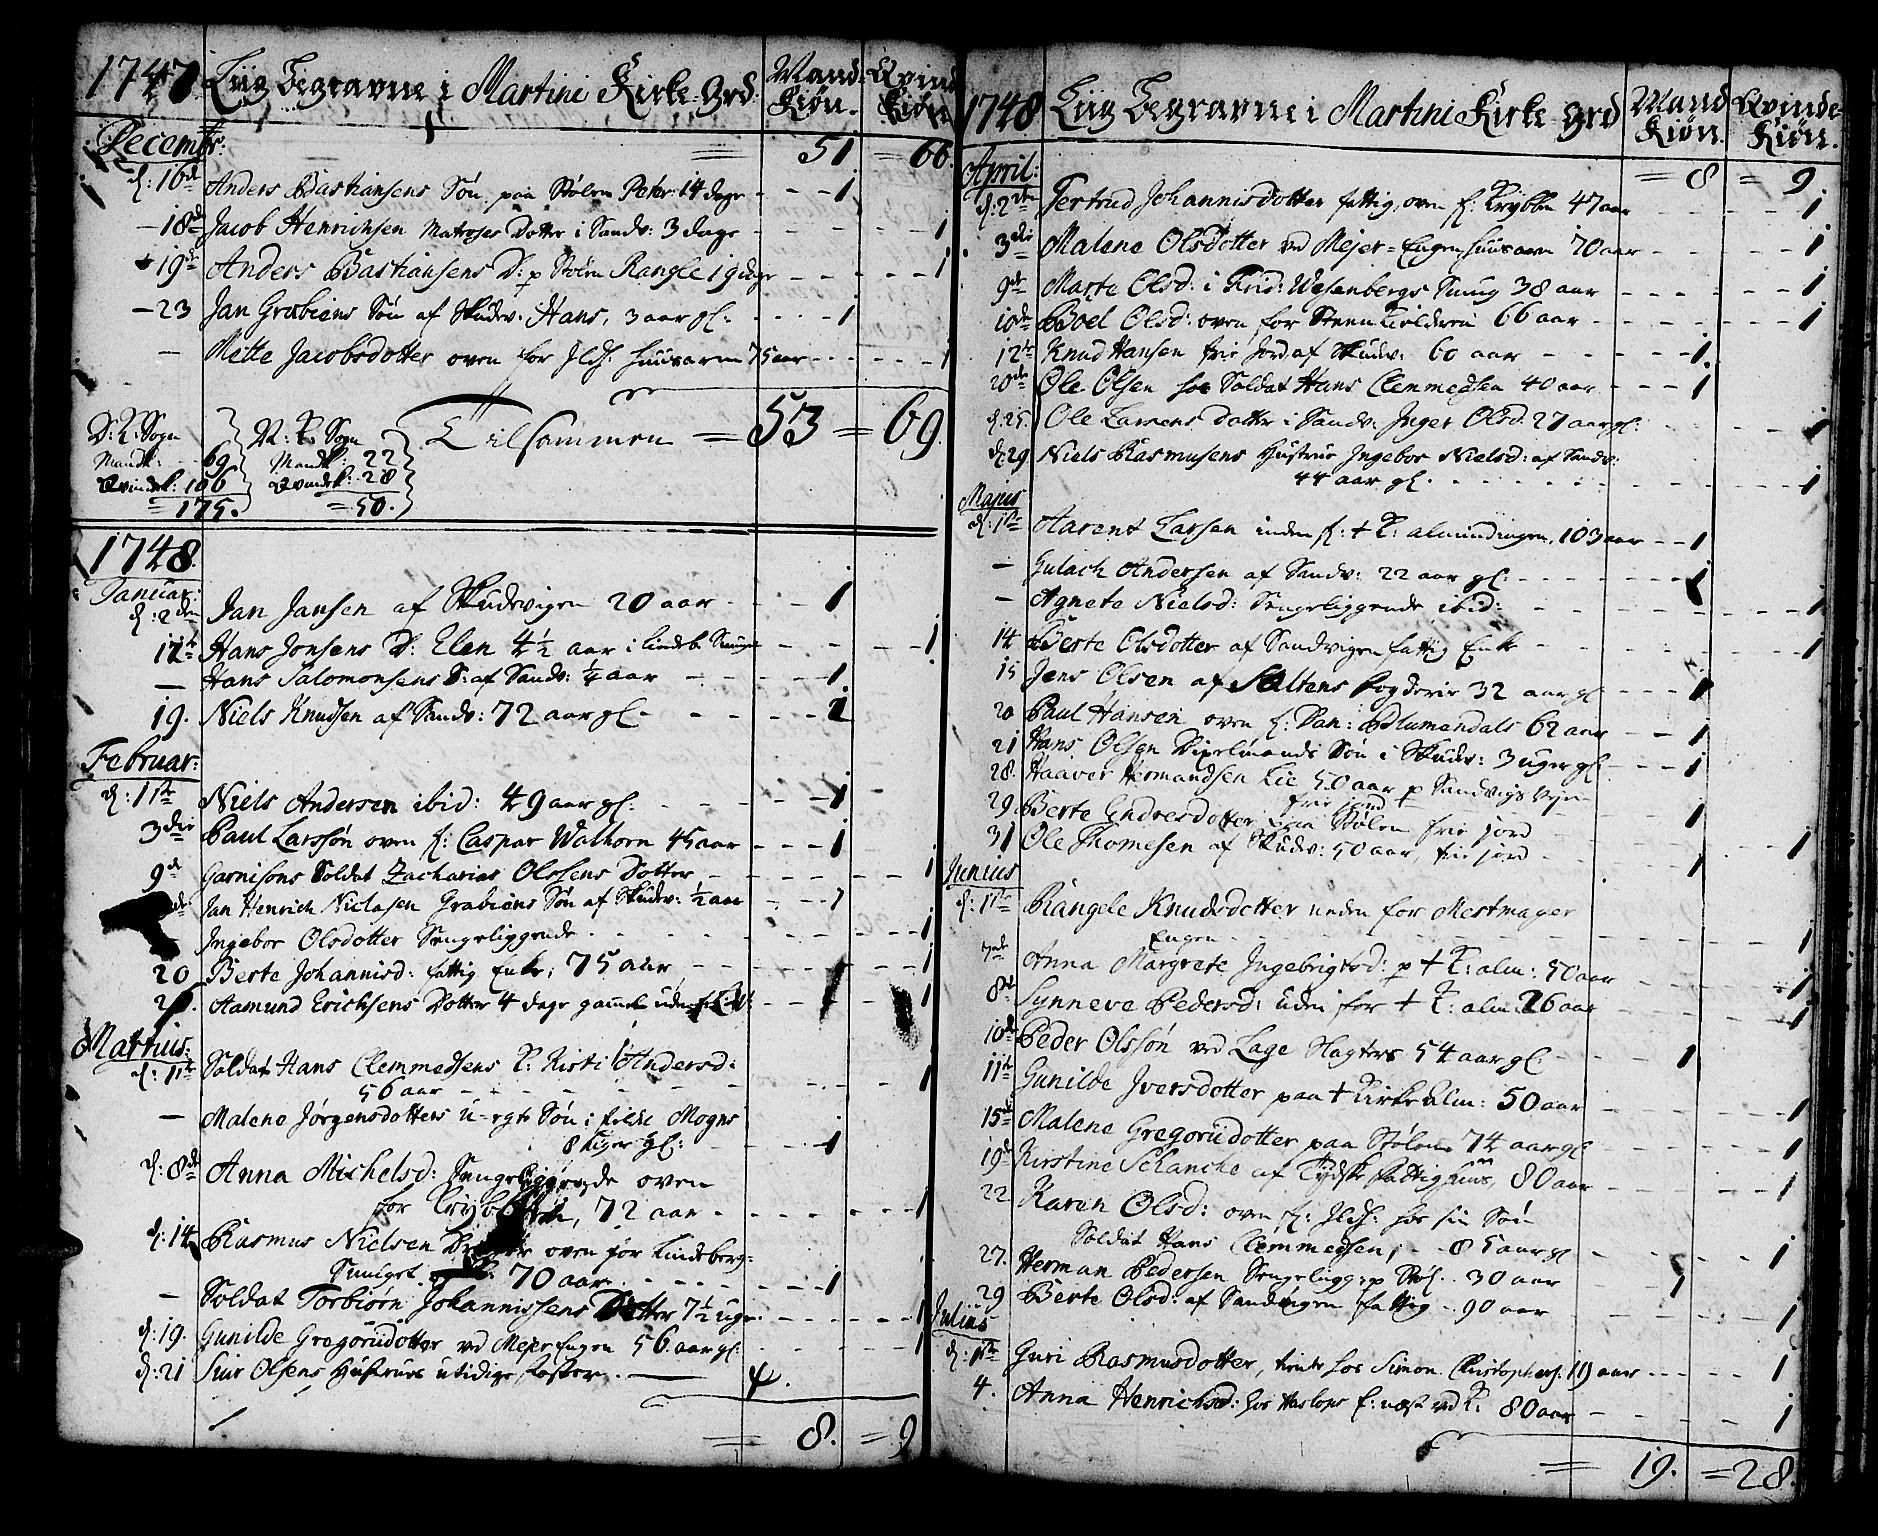 1747. Liig Begravne i Martini Kirke-Grd. Mand: Kiøn. Qvind Kiøn
Decembr: = 51 = 66.
d: 16de Anders Bastiansens Søn paa Stølen Peter 14 dage - - - 1
- 18de Jacob Henrichsen Matroses Dotter i Sandv: 3 dage - - - 1
+ 19de Anders Bastiansens D: p Stølen Rangle 19 dage - - - 1
- 23 Jan Grabiens Søn af Skudev: Hans, 3 aar gl: - - - 1
- Mette Jacobsdotter oven for Ildh: Huusarm 75 aar - - - 1
D: K: Sogn M: K: Sogn Tilsammen = 53 = 69.
Mandk: 69 Mandk: 22
Qvindek: 106 Qvindek: 28
= 175. = 50.
1748.
Januar:
d: 2den Jan Jansen af Skudevigen 20 aar - - - 1
12te Hans Jonsens D: Elen 4½ aar i Lindeb: Smuge - - - 1
- Hans Salomonsens S: af Sandv: ¼ aar - - - 1
19. Niels Knudsen af Sandv: 72 aar gl - - - 1
Februar:
d: 1ste Niels Andersen ibid: 49 aar gl: - - - 1
3die Paul Larssøn oven f: Caspar Walhorn 45 aar - - - 1
9de Garnisons Soldat Zacharias Olssens Dotter - - - 1
Jan Henrich Niclasen Grabiens Søn af Skudev: ½ aar - - - 1
Ingebor Olsdotter Sengeliggende - - - 1
20 Berte Johannisd: fattig Enke, 75 aar - - - 1
Aamund Erichsens Dotter 4 dage gammel - - - 1
Martius:
d: 1ste Soldat Hans Clemmedsens K: Kirsti Andersd:
56 aar - - - 1
- Malene Jørgensdotters u-egte Søn i
8 Uger gl: - - - 1
d: 8de Anna Michelsd: Sengeliggende oven
for Krybben, 72 aar - - - 1
d: 14 Rasmus Nielsen oven for Lindeberg:
Smuget 70 aar - - - 1
- Soldat Torbiørn Johannissens Dotter 7½ uge - - - 1
d: 19. Gunilde Gregoriidotter ved Mejer Engen 56 aar gl: - - - 1
d: 21 Siur Olsens Hustrues utidige foster.
= 8. = 9
1748 Liig Begravne i Martini Kirke-Grd Mand Kiøn. Qvinde Kiøn.
April: = 8 = 9.
d: 2den Gertrud Johannisdotter fattig, oven f: Krybben 47 aar - - - 1
3die Malene Olsdotter ved Mejer-Engen Huusarm 70 aar - - - 1
9de Marte Olsd: i Frid: Wesenbergs Smug 38 aar - - - 1
10de Boel Olsd: oven for Steenkielderen 66 aar - - - 1
12te Knud Hansen frie Jord af Skudev: 60 aar - - - 1
20de Ole Olsen hos Soldat Hans Clemmedsen 40 aar - - - 1
d: 25. Ole Larsens Datter i Sandv: Inger Olsd: 27 aar gl: - - - 1
d: 29 Niels Rasmusens Hustrue Ingebor Nielsd: af Sandv:
44 aar gl. - - - 1
Majus
d: 1ste Aarent Larsen inden f: + K: almindingen, 103 aar - - 1
- Gulach Andersen af Sandv: 22 aar gl: - - - 1
- Agnete Nielsd: Sengeliggende ibid: - - - 1
14 Berte Olsdotter af Sandvigen fattig Enke - - - 1
15 Jens Olsen af Saltens fogderie 32 aar gl - - - 1
20 Paul Hansen oven f: Dan: Blumendals 62 aar - - 1
21 Hans Olsen Søn i Skudv: 3 uger gl - - - 1
28. Haaver Hermandsen Lie 50 aar p Sandvigs Vejen
frie Jord - - 1
29 Berte Endresdotter paa Stølen frie jord - - - 1
31 Ole Thomesen af Skudv: 50 aar, frie jord - - - 1
Junius
d: 1ste Rangele Knudsdotter neden for Mestmager
Engen - - - 1
7de Anna Margrete Ingebrigtsd: p + K: alm: 50 aar - 1
8de Synneve Pedersd: uden for + K: alm: 26 aar - - - 1
10de Peder Olssøn ved Lage Slagters 54 aar gl - - - 1
11te Gunilde Iversdotter paa + Kirke Alm: 50 aar - - - 1
15de Malene Gregoriidotter paa Stølen 74 aar gl - - - 1
19de Kirstine Schancke af Tydske fattighuus, 80 aar - - - 1
22 Karen Olsd: oven f: Ildh: hos sin Søn
Soldat Hans Clemmedsen, - - 85 aar gl - - - 1
27. Herman Pedersen Sengeligg: p Støl. 30 aar - - - 1
29 Berte Olsd: af Sandvigen fattig - 90 aar - - - 1
Julius
d: 1ste Guri Rasmusdotter, tiente hos Simon Christophers: 19 aar - - - 1
4. Anna Henrichsd: hos Haslops E: næst ved K: 80 aar - - - 1
= 19. = 28.